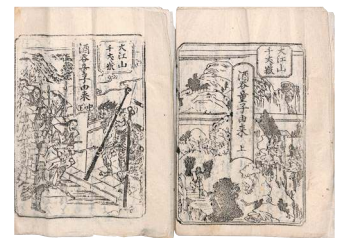 大江山
千丈嶽
酒呑童子由来 上
大江山
千丈嶽
酒呑童子由来